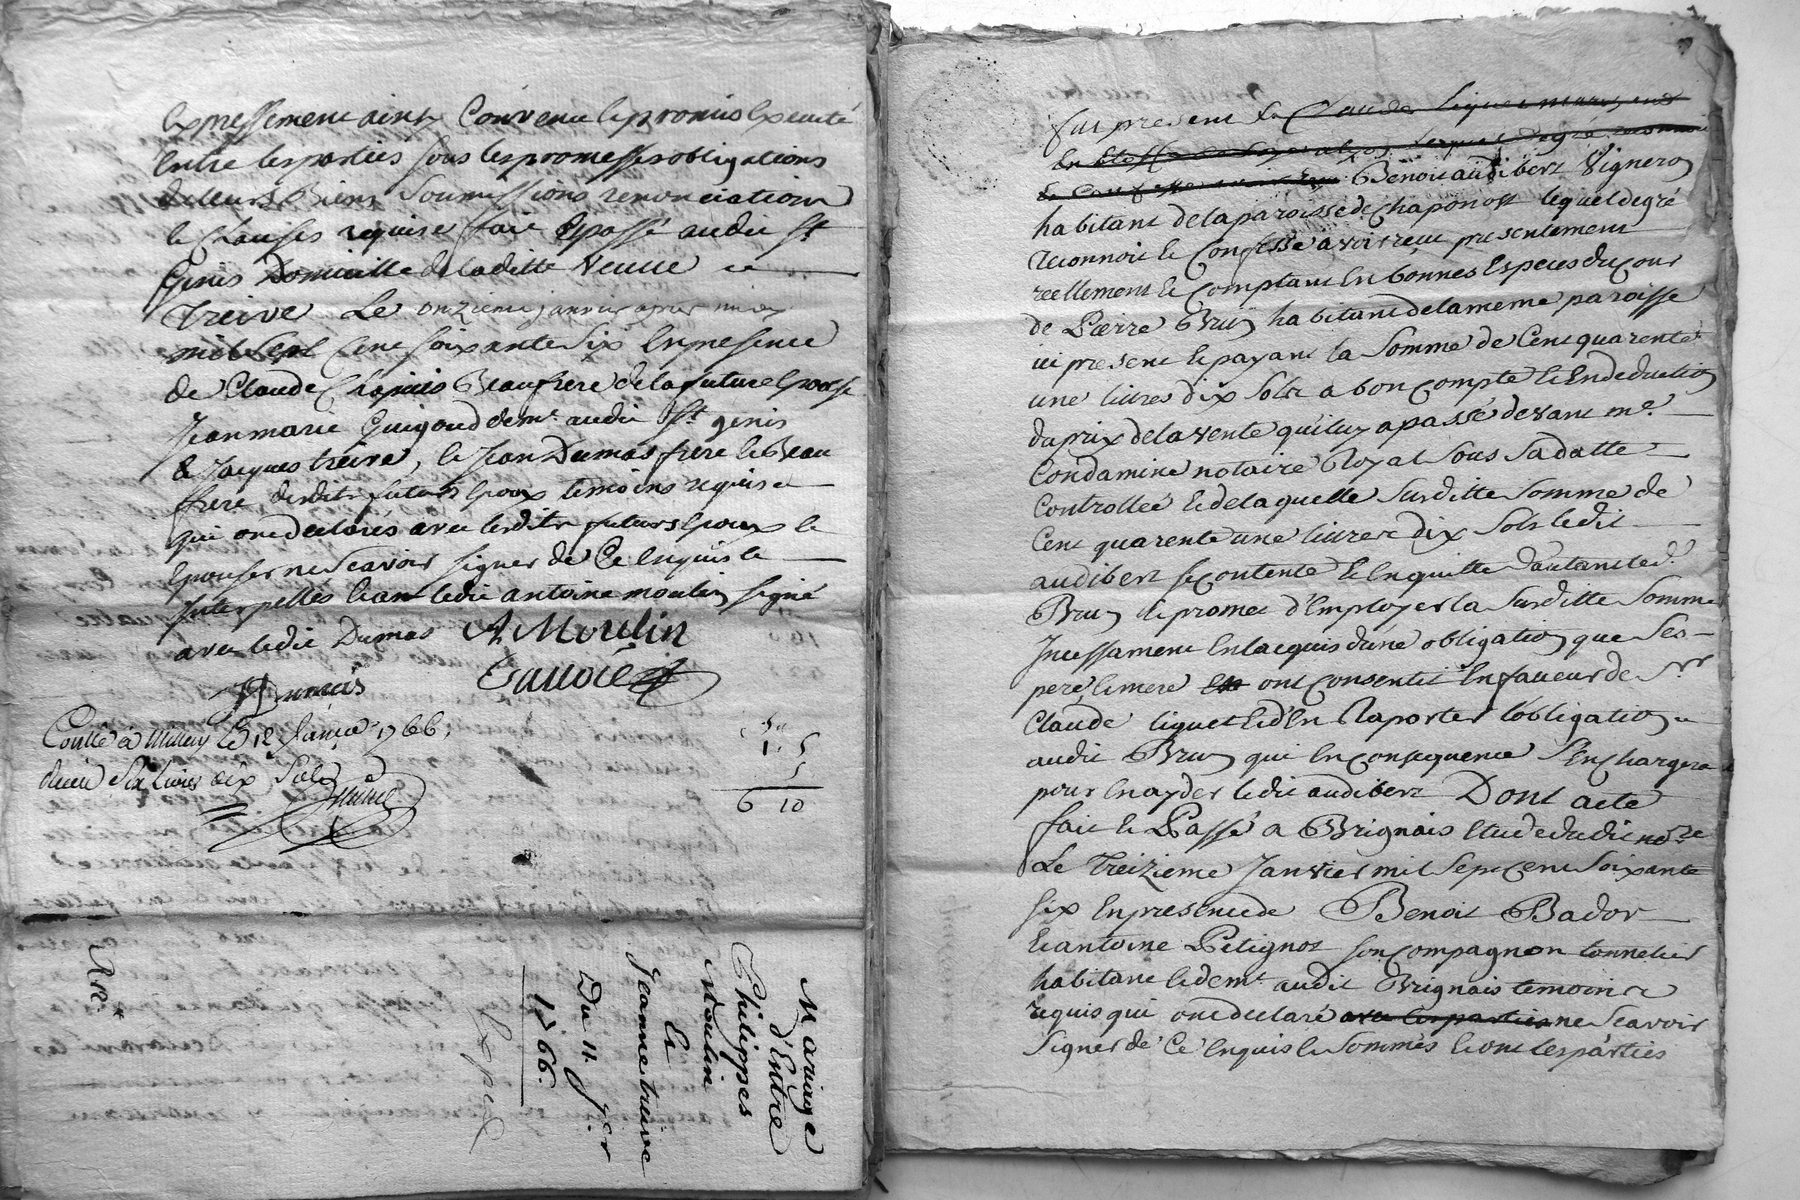 Expressement ainsy Convenu le promis Executé
Entre les parties sous les promesses obligations
de leurs Biens Soumissions renonciations
& Clauses requise fait & passé audit St
Genis Domicille de laditte veuve
Treive Le onzieme janvier apres midy
mil Sept Cent soixante six En presence
de Claude Chapuis Beaufrere de la future Epouse
Jean marie Guigoud demt. audit St. genis
& Jacques treive, & Jean Dumas frere & Beau
frere desdits futurs Epoux temoins requis
qui ont declarés avec lesdits futurs Epoux &
Epouse ne Scavoir signer de Ce Enquis &
Interpellés Et ont ledit antoine moulin signé
avec ledit Dumas A Moulin
Dumas
Conllé a Millery le 12 Janvier 1766,
Reçu Six Livres dix Sols
1. 5
5
6 10
Mariage
d'Entre
Philippes
Moulin
Et
Jeanne treive
Du 11. Jer
1766.
Exped
fut present Sr. Claude Liquet marchand
Benoit audibert Vigneron
habitant de la paroisse de Chaponost lequel de gré
reconnoit & Confesse avoir reçu presentement
reellement & Comptant En bonnes Especes du Cour
de Pierre Brun habitant de la meme paroisse
ici present & payant la Somme de Cent quarente
une livres dix Sols a bon compte & En deduction
du prix de la vente qu'il luy a passé devant me.
Condamine notaire Royal Sous Sa datte
Controllée & de laquelle Surditte Somme de
Cent quarente une livres dix Sols ledit
audibert se contente & En quitte d'autant led.
Brun & promet d'Employer la Surditte Somme
Incessament En l'acquis d'une obligation que Ses
pere & mere ont Consentit En faveur de Sr.
Claude liquet & d'En Raporter l'obligation
audit Brun qui En Consequence S'En Chargera
pour En ayder ledit audibert Dont acte
fait & Passé a Brignais Etude dudit nore
Le Treizieme Janvier mil Sept Cent Soixante
six En presence de Benoit Bador
& antoine Petignot son Compagnon tonnelier
habitant & demt. audit Brignais temoins
requis qui ont declaré avec les parties ne Scavoir
Signer de Ce Enquis & Sommés & ont les parties